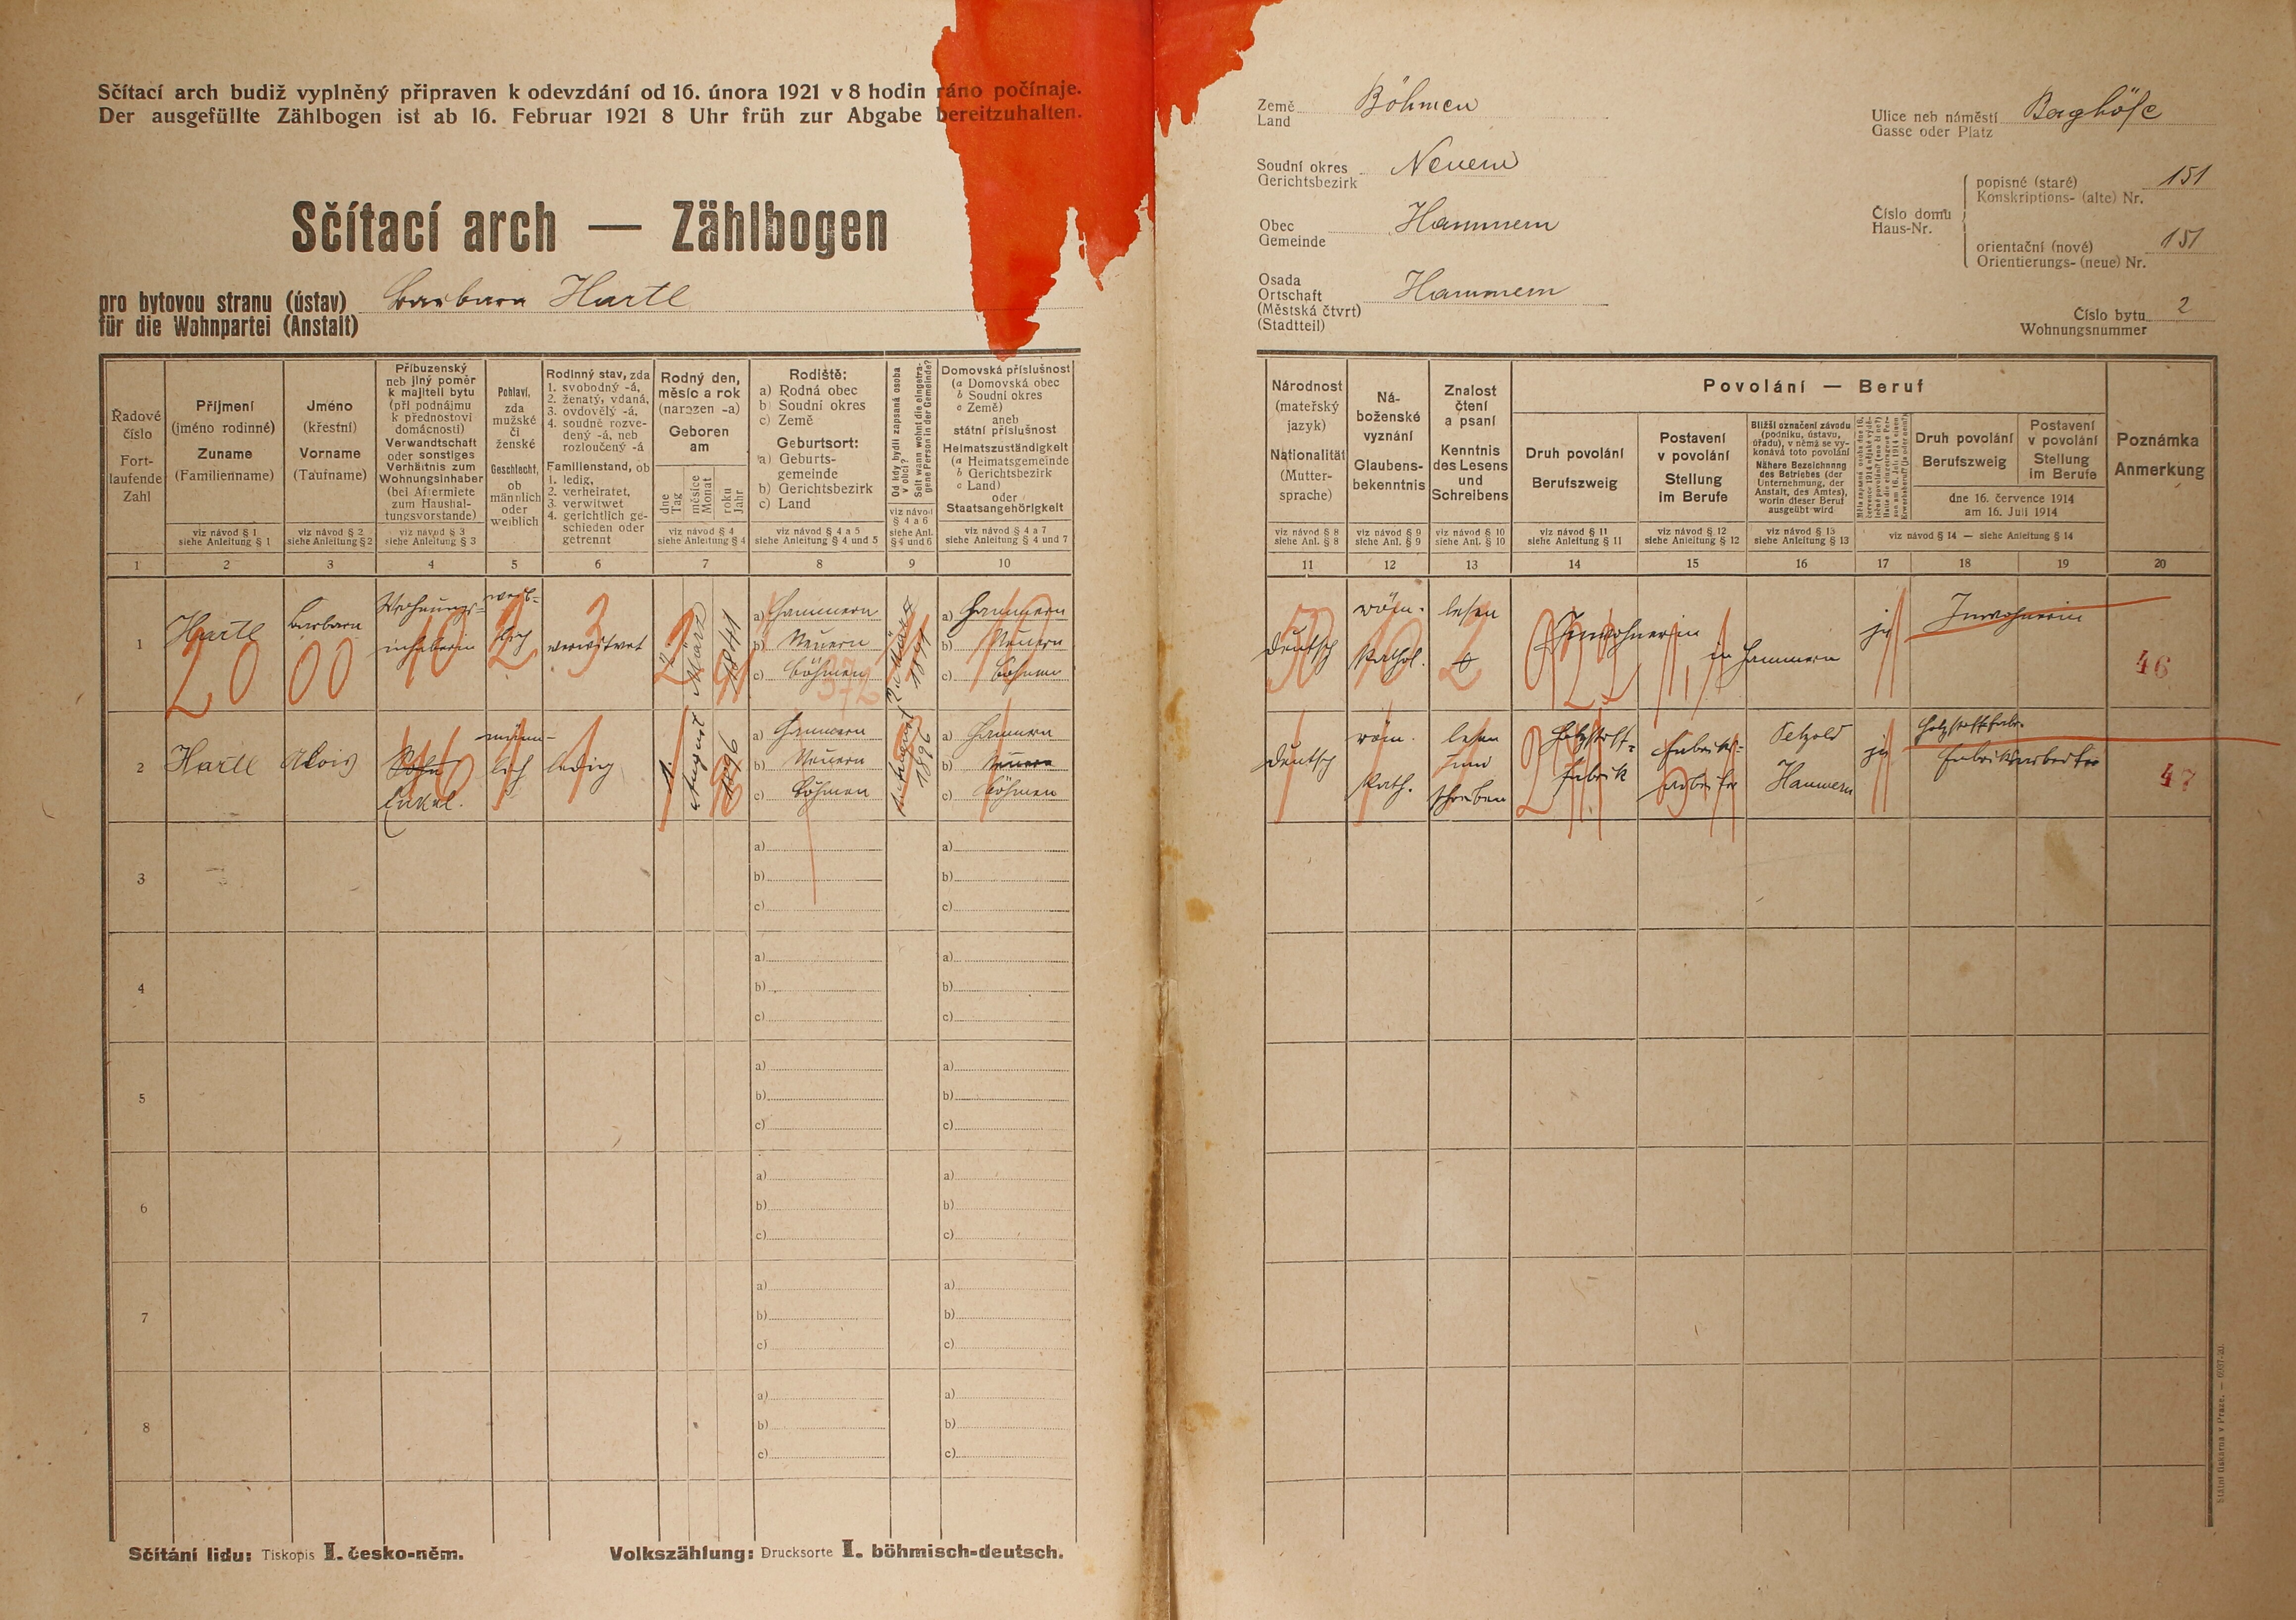 Sčítací arch budiž vyplněný připraven k odevzdání od 16. února 1921 v 8 hodin ráno počínaje.
Der ausgefüllte Zählbogen ist ab 16. Februar 1921 8 Uhr früh zur Abgabe bereitzuhalten.
Sčítací arch — Zählbogen
pro bytovou stranu (ústav)
für die Wohnpartei (Anstalt)
Barbara Hartl
Země
Land
Böhmen
Soudní okres
Gerichtsbezirk
Neuern
Obec
Gemeinde
Hammern
Osada
Ortschaft
(Městská čtvrt)
(Stadtteil)
Hammern
Ulice neb náměstí
Gasse oder Platz
Berghöfe
Číslo domu
Haus-Nr.
popisné (staré)
Konskriptions- (alte) Nr.
151
orientační (nové)
Orientierungs- (neue) Nr.
151
Číslo bytu
Wohnungsnummer
2
Řadové
číslo
Fort-
laufende
Zahl
Příjmení
(jméno rodinné)
Zuname
(Familienname)
viz návod § 1
siehe Anleitung § 1
Jméno
(křestní)
Vorname
(Taufname)
viz návod § 2
siehe Anleitung § 2
Příbuzenský
neb jiný poměr
k majiteli bytu
(při podnájmu
k přednostovi
domácnosti)
Verwandtschaft
oder sonstiges
Verhältnis zum
Wohnungsinhaber
(bei Aftermiete
zum Haushal-
tungsvorstande)
viz návod § 3
siehe Anleitung § 3
Pohlaví,
zda
mužské
či
ženské
Geschlecht,
ob
männlich
oder
weiblich
Rodinný stav, zda
1. svobodný -á,
2. ženatý, vdaná,
3. ovdovělý -á,
4. soudně rozve-
dený -á, neb
rozloučený -á
Familienstand, ob
1. ledig,
2. verheiratet,
3. verwitwet
4. gerichtlich ge-
schieden oder
getrennt
Rodný den,
měsíc a rok
(narozen -a)
Geboren
am
dne
Tag
měsíce
Monat
roku
Jahr
viz návod § 4
siehe Anleitung § 4
Rodiště:
a) Rodná obec
b) Soudní okres
c) Země
Geburtsort:
a) Geburts-
gemeinde
b) Gerichtsbezirk
c) Land
viz návod § 4 a 5
siehe Anleitung § 4 und 5
Od kdy bydlí zapsaná osoba
v obci?
Seit wann wohnt die eingetra-
gene Person in der Gemeinde?
viz návod
§ 4 a 6
siehe Anl.
§ 4 und 6
Domovská příslušnost
(a Domovská obec
b Soudní okres
c Země)
aneb
státní příslušnost
Heimatszuständigkeit
(a Heimatsgemeinde
b Gerichtsbezirk
c Land)
oder
Staatsangehörigkeit
viz návod § 4 a 7
siehe Anleitung § 4 und 7
Národnost
(mateřský
jazyk)
Nationalität
(Mutter-
sprache)
viz návod § 8
siehe Anl. § 8
Ná-
boženské
vyznání
Glaubens-
bekenntnis
viz návod § 9
siehe Anl. § 9
Znalost
čtení
a psaní
Kenntnis
des Lesens
und
Schreibens
viz návod § 10
siehe Anl. § 10
Povolání — Beruf
Druh povolání
Berufszweig
viz návod § 11
siehe Anleitung § 11
Postavení
v povolání
Stellung
im Berufe
viz návod § 12
siehe Anleitung § 12
Bližší označení závodu
(podniku, ústavu,
úřadu), v němž se vy-
konává toto povolání
Nähere Bezeichnung
des Betriebes (der
Unternehmung, der
Anstalt, des Amtes),
worin dieser Beruf
ausgeübt wird
viz návod § 13
siehe Anleitung § 13
Druh povolání
Berufszweig
Postavení
v povolání
Stellung
im Berufe
dne 16. července 1914
am 16. Juli 1914
viz návod § 14 — siehe Anleitung § 14
Poznámka
Anmerkung
1 2 3 4 5 6 7 8 9 10 11 12 13 14 15 16 17 18 19 20
1
Hartl
Barbara
Wohnungs-
inhaberin
weib-
lich
verwitwet
2.
März
1841
a) Hammern
b) Neuern
c) Böhmen
2. März
1841
a) Hammern
b) Neuern
c) Böhmen
deutsch
röm.
kathol.
lesen
Inwohnerin
in Hammern
ja
Inwohnerin
46
2
Hartl
Alois
Sohn
Enkel.
männ-
lich
ledig
1.
August
1896
a) Hammern
b) Neuern
c) Böhmen
1. August
1896
a) Hammern
b) Neuern
c) Böhmen
deutsch
röm.
kath.
lesen
und
schreiben
Holzstoff-
fabrik
Fabriks-
arbeiter
Petzold
Hammern
ja
Holzstofffabr.
Fabriksarbeiter
47
3
a)
b)
c)
a)
b)
c)
4
a)
b)
c)
a)
b)
c)
5
a)
b)
c)
a)
b)
c)
6
a)
b)
c)
a)
b)
c)
7
a)
b)
c)
a)
b)
c)
8
a)
b)
c)
a)
b)
c)
Sčítání lidu: Tiskopis I. česko-něm.
Volkszählung: Drucksorte I. böhmisch-deutsch.